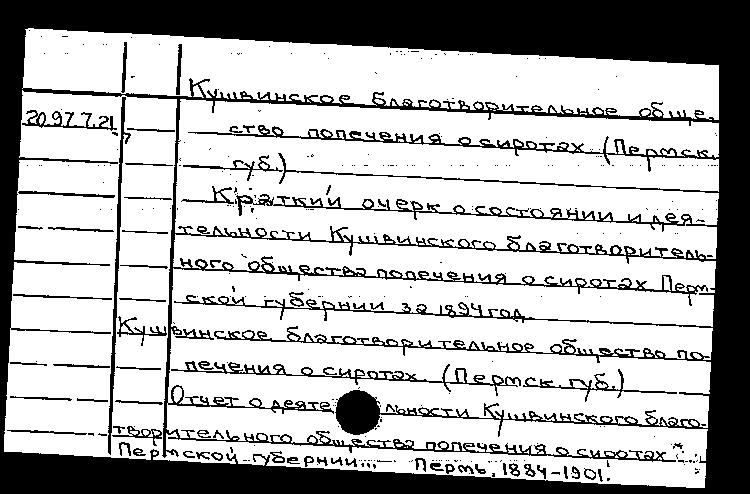 Кушвинское благотворительное обще-
20.97.7.21
ство попечения о сиротах. (Пермск.
губ.)
Краткий очерк о состоянии и дея-
тельности Кушвинского благотворитель-
ного общества попечения о сиротах Перм-
ской губернии за 1894 год.
Кушвинское благотворительное общество по-
печения о сиротах. (Пермск. губ.)
Отчет о деятельности Кушвинского благо-
творительного общества попечения о сиротах
Пермской губернии... Пермь, 1884-1901.